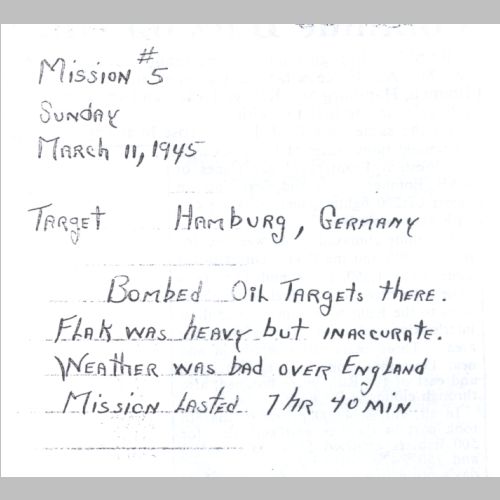 Mission #5
Sunday
March 11, 1945
Target Hamburg, Germany
Bombed Oil Targets there.
Flak was heavy but inaccurate.
Weather was bad over England
Mission lasted 7 hr 40 min